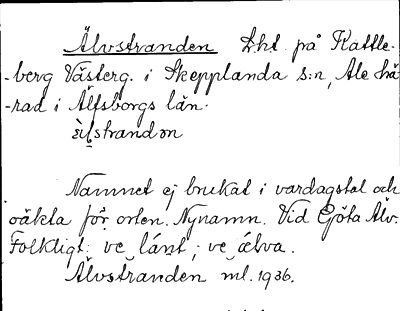 Älvstranden Lht. på Kattle-
-berg Västerg. i Skepplanda s:n, Ale hä
-rad i Älfsborgs län.
Namnet ej brukat i vardagstal och
oäkta för orten. Nynamn. Vid Göta Älv.
Folkligt: ve lánt; ve ǽlva.
Älvstranden ml. 1936.